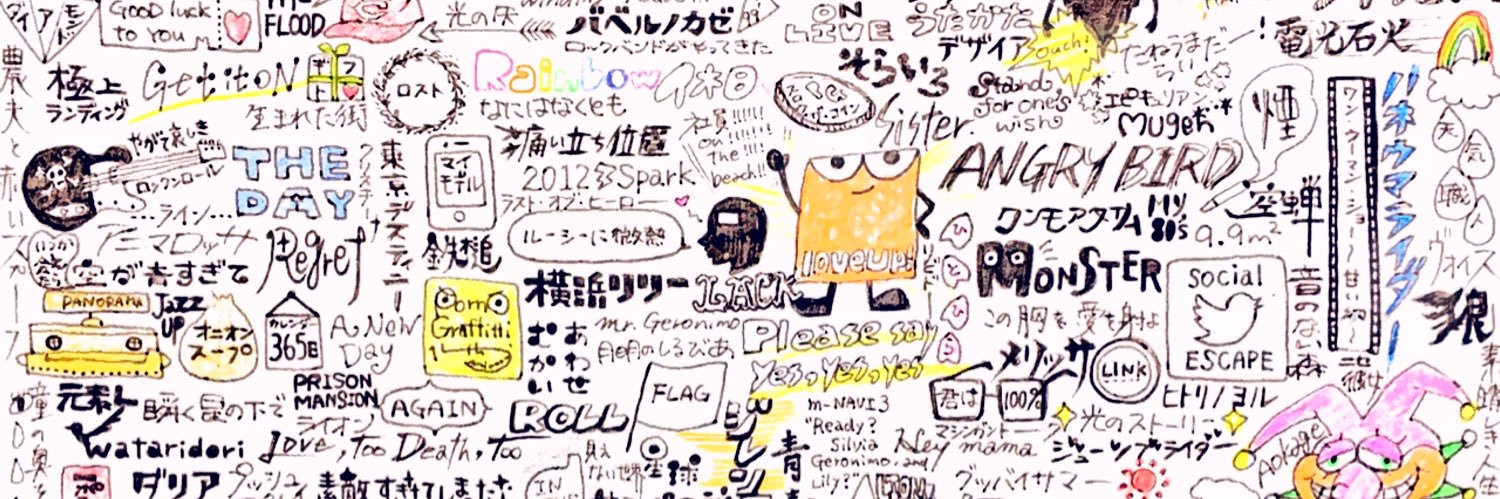 ダイアモンド
GOOD luck
to YOU
THE
FLOOD
光の灰
バベルノカゼ
ロックバンドがやってきた
ON
LiVE
うたかた
デザイア
ouch!
たねうまだー!
電光石火
農夫と赤いスカーフ
極上
ランディング
Get it oN
ギフト
生まれた街
ロスト
Rainbow
なにはなくとも
休日
社員!!!!!!
on!!!!!!
the!!!
beach!!
そらいろ
Sister
Stand
for one's
wish
エピキュリアン
Mugen
煙
ワン・ウーマン・ショー〜甘い幻〜
ハネウマライダー
天気職人
やがて哀しき
ロックンロール
THE
DAY
…ライン…
アニマロッサ
東京デスティニー
マイ
モデル
痛い立ち位置
2012 Spark
ラスト・オブ・ヒーロー
ルーシーに微熱
鉄槌
loveup!
ANGRY BIRD
ワンモアタイム
Hey
80's
空蝉
9.9m²
ヴォイス
いつか
空が青すぎて
Regret
PANORAMA
Jazz
UP
オニオン
スープ
カレンダー
365日
A New
Day
Porno
Graffitti
横浜リリー
LACK
むかいあわせ
mr. Geronimo
月明のしるびあ
Please say
yes, yes, yes
ひとひら
MONSTER
この胸を、愛を射よ
メリッサ
LINK
social
ESCAPE
音のない森
狼
元素L
瞬く星の下で
PRISON
MANSION
ライオン
AGAIN
ROLL
FLAG
君は
100%
マシンガントーク
ヒトリノヨル
彼女
wataridori
Love, too Death, too
見えない世界
m-NAVI3
"Ready?
Silvia
Geronimo, and
Lily?"
Hey
mama
光のストーリー
ジューシーライダー
Apokage
瞳の奥を
ダリア
プッシュ
素敵すぎてしまった
IN
地球
青
グッバイサマー
素晴しき人生